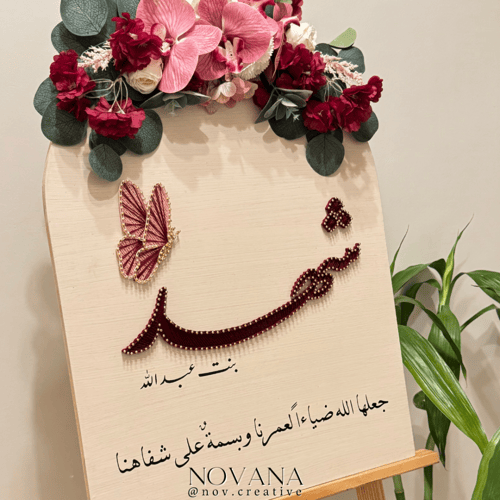 شهد
بنت عبدالله
جعلها الله ضياءاً لعمرنا وبسمةٌ على شفاهنا
NOVANA
@nov.creative